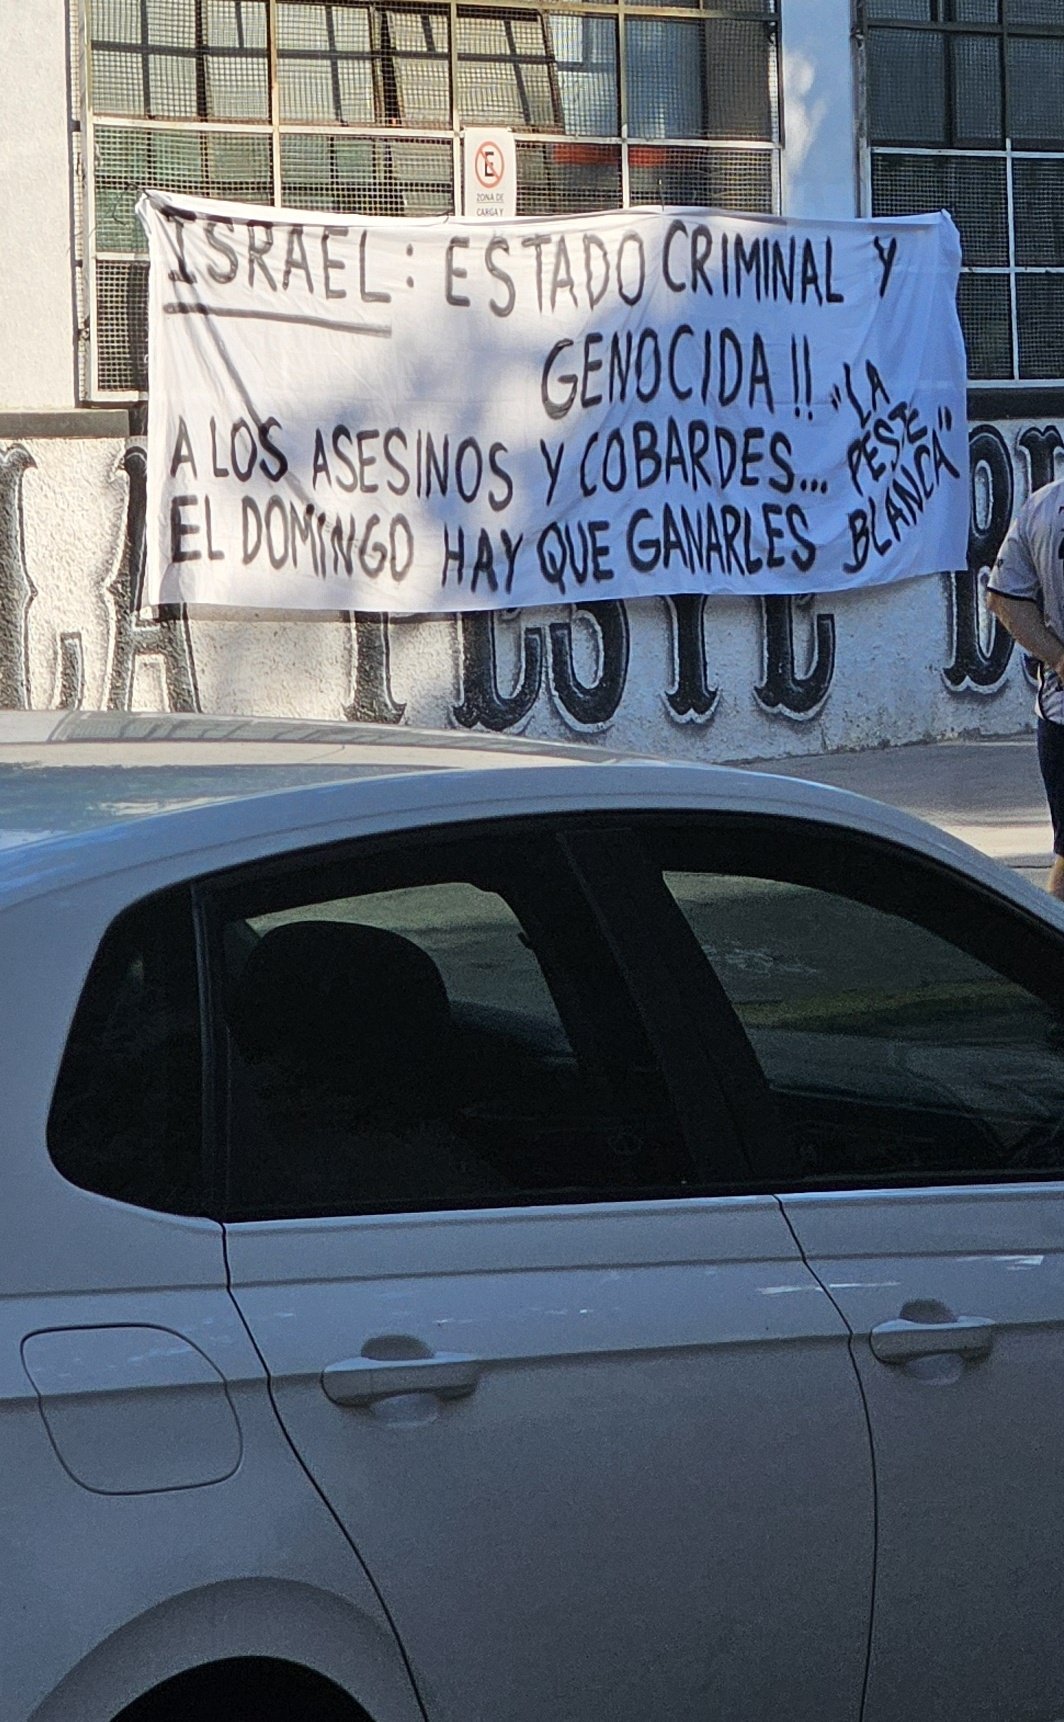 E
ZONA DE
CARGA Y
ISRAEL: ESTADO CRIMINAL Y
GENOCIDA!!
A LOS ASESINOS Y COBARDES...
EL DOMINGO HAY QUE GANARLES
"LA
PESTE
BLANCA"
LA PESTE